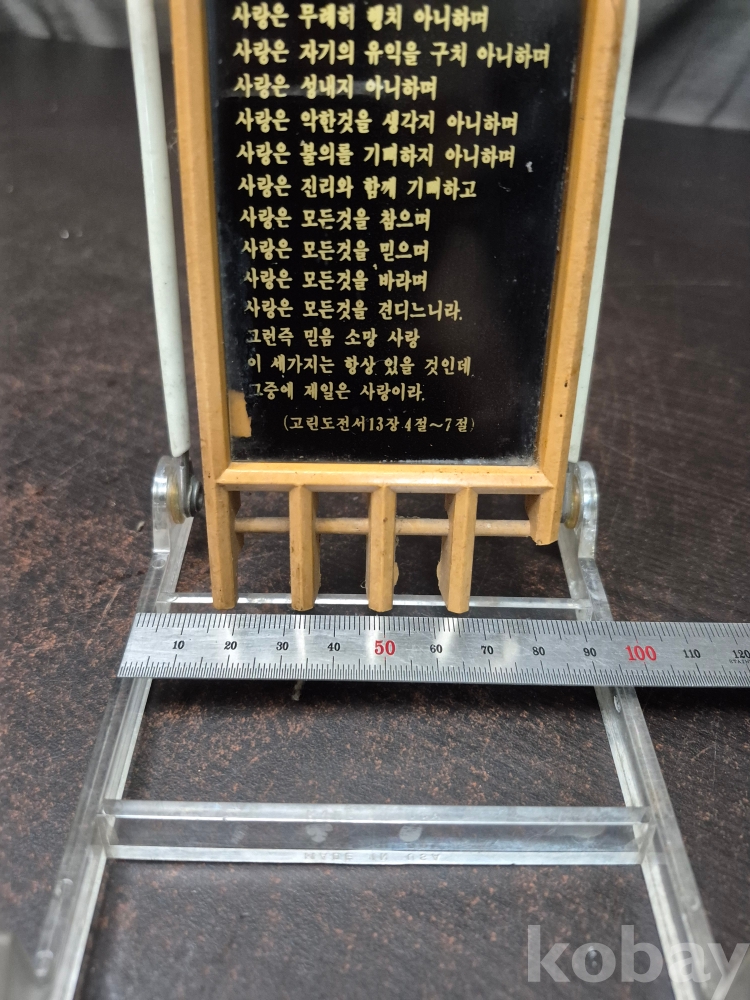 사랑은 무례히 행치 아니하며
사랑은 자기의 유익을 구치 아니하며
사랑은 성내지 아니하며
사랑은 악한것을 생각지 아니하며
사랑은 불의를 기뻐하지 아니하며
사랑은 진리와 함께 기뻐하고
사랑은 모든것을 참으며
사랑은 모든것을 믿으며
사랑은 모든것을 바라며
사랑은 모든것을 견디느니라.
그런즉 믿음 소망 사랑
이 세가지는 항상 있을 것인데
그중에 제일은 사랑이라.
(고린도전서13장 4절~7절)
10 20 30 40 50 60 70 80 90 100 110 120
kobay